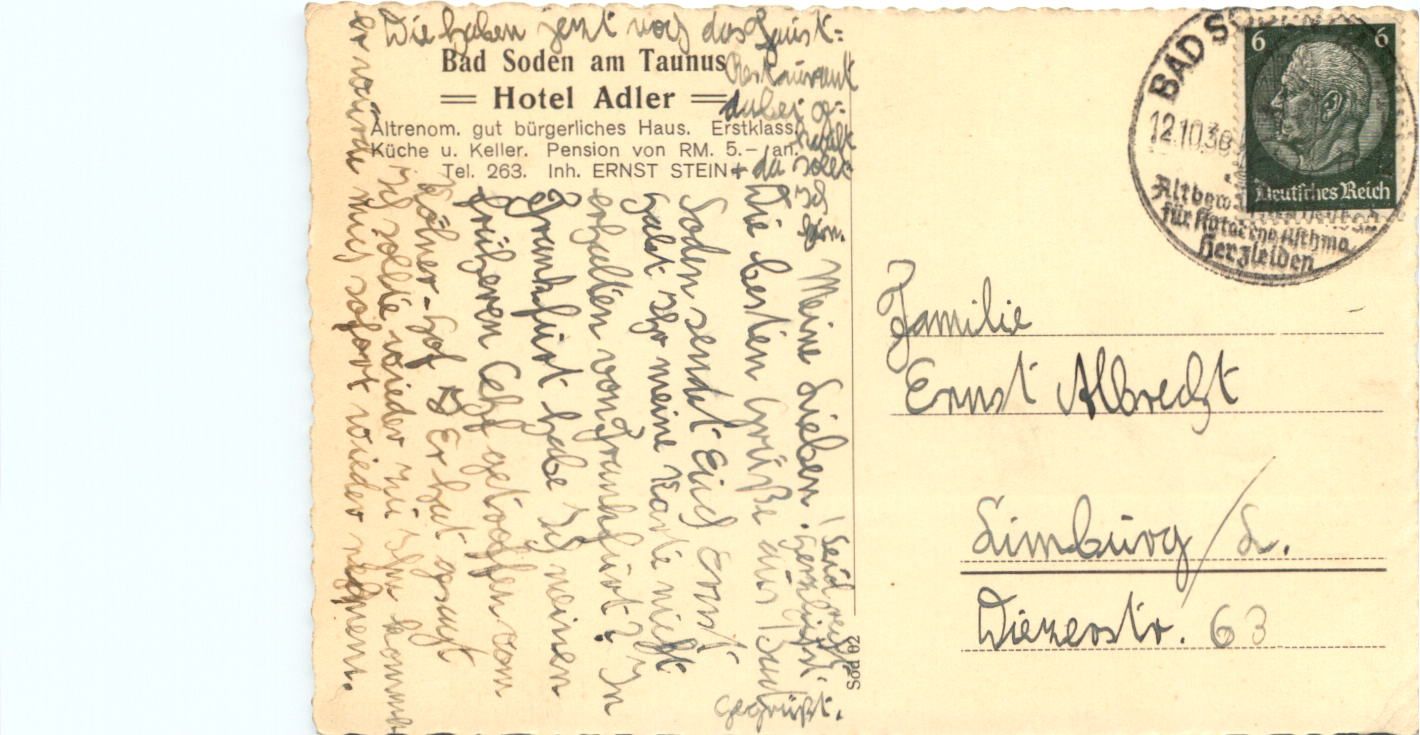 Bad Soden am Taunus
Hotel Adler
Altrenom. gut bürgerliches Haus. Erstklass.
Küche u. Keller. Pension von RM. 5.– an.
Tel. 263. Inh. ERNST STEIN
Meine Lieben!
Die besten Grüße aus Bad
Soden sendet Euch Ernst
Habt Ihr meine Karte nicht
erhalten von Frankfurt? In
Frankfurt habe Ich meinen
früheren Chef getroffen vom
Kölner-Hof. Er hat gesagt
Ich sollte wieder zu Ihm kommen
er würde mich sofort wieder nehmen.
Die haben jetzt noch das
Restaurant
dabei
da
Ich
hin.
Seid recht
herzlichst
gegrüßt.
Sod 62
BAD
12.10.36
für Katarrhe Asthma
Herzleiden
6 6
Deutsches Reich
Familie
Ernst Albrecht
Limburg/L.
Diezerstr. 63